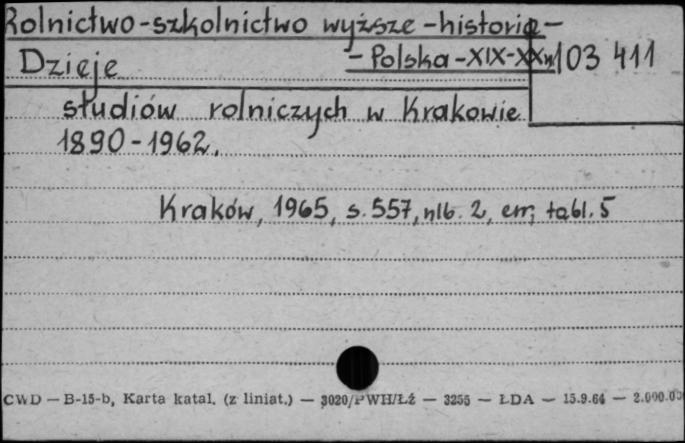 Rolnictwo-szkolnictwo wyższe-historia-
-Polska-XIX-XXw
103 411
Dzieje
studiów rolniczych w Krakowie
1890-1962.
Kraków, 1965, s. 557, nlb. 2, err, tabl. 5
CWD — B-15-b, Karta katal. (z liniat.) — 3020/PWH/Łź — 3255 — ŁDA — 15.9.64 — 2.000.00